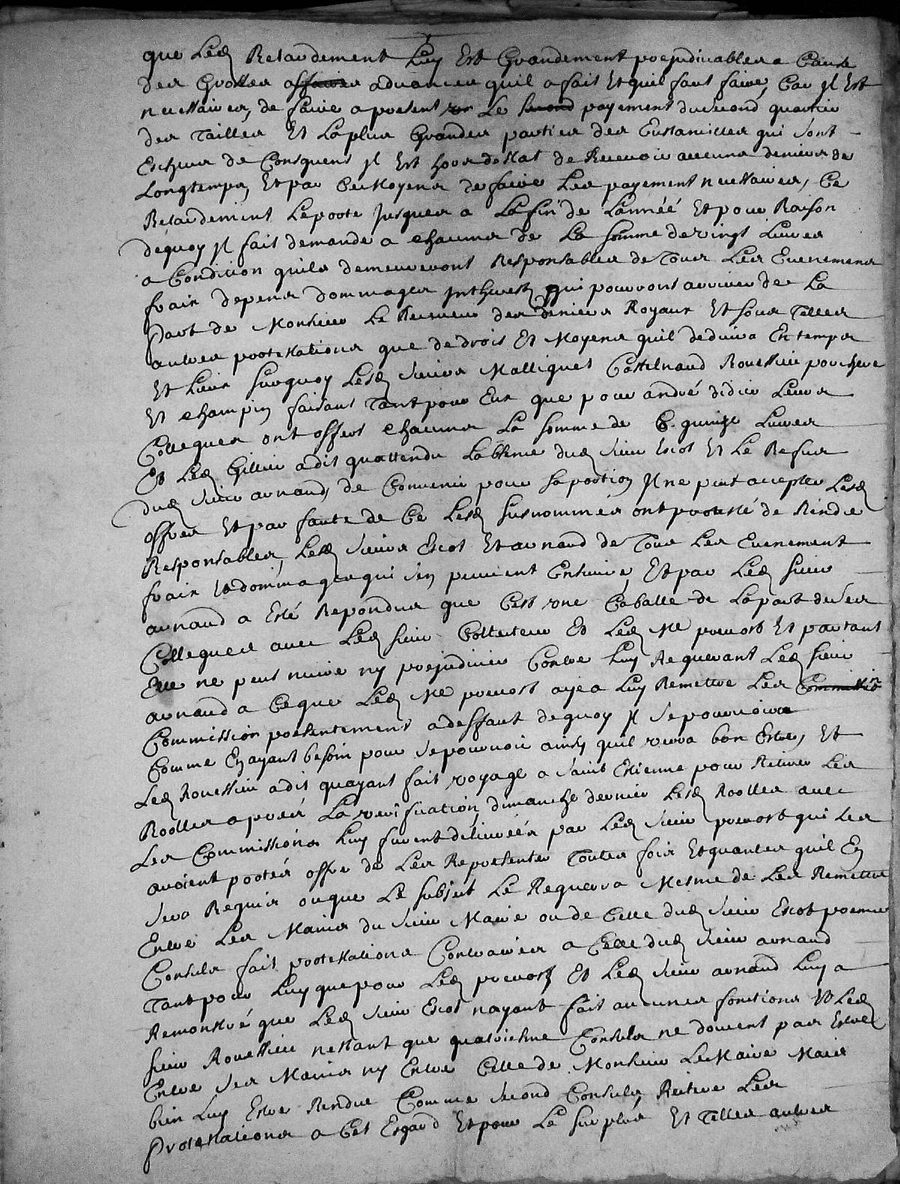 que Led Retardement Luy Est Grandement prejudiciables a Cause
des Grosses affaires advances quil a fait Et quil faut faire, Car Jl Est
necessaires, de faire a present le second payement du second quartier
des Tailles Et La plus Grandes parties des Eustancilles qui sont
Escheus de Consequens Jl Est hors destat de Recevoir aucuns deniers de
Longtemps, Et par Ce Moyens de faire Les payement necessaires, Ce
Retardement Le porte Jusques a La fin de Lannéé Et pour Raison
dequoy Jl fait demande a chacuns de La somme de vingt Livres
a Condition quils demeureront Responsables de Tous Les Evenemens
frais depens dommages Intherests qui pourront arriver de La
part de Monsieur Le Receveur des deniers Royaux Et sous Telles
autres protestations que de droit Et Moyens quil deduira En temps
Et Lieu Surquoy Lesd Sieurs Malliquet Castelnaud Roussin
Et Champin faisant Tant pour Eux que pour andré didier Leurs
Collegues ont offert chacuns La somme de quinze Livres
Et Led Gillier a dit quattendu Labsence dud Sieur Escot Et Le Refus
dud Sieur arnaud, de Convenir pour sa portion Jl ne peut accepter Lesd
offres Et par faute de Ce Lesd susnommés ont protesté de Rendre
Responsables, Lesd Sieurs Escot Et arnaud de Tous Les Evenement
frais Et dommages qui sen peuvent Ensuivre, Et par Led Sieur
arnaud a Esté Repondus que Cest une Caballe de La part de ses
Collegues avec Led Sieur Collecteur Et Led Me prevost Et partant
Elle ne peut nuire ny prejudicier Contre Luy Requerant Led Sieur
arnaud a Ce que Led Me prevost aye a Luy Remettre Les Commissio
Commission presentement a deffaut dequoy Jl se pourvoira
Comme En ayant besoin pour se pourvoir ainsy quil verra bon Estre, Et
Led Roussin a dit quayant fait voyage a Saint Estienne pour Retirer Les
Roolles aprés La veriffication dimanche dernier Lesd Roolles avec
Les Commissions Luy furent délivréés par Led Sieur prevost qui Les
avoient portés offre de Les Representer Toutes fois Et quantes quil En
sera Requis ou que Le subjet Le Requerra Mesme de Les Remettre
Entre Les Mains du Sieur Maire ou de Celle dud Sieur Escot premier
Consuls fait protestations Contraires a Celle dud Sieur arnaud
Tant pour Luy que pour Led prevost Et Led Sieur arnaud Luy a
Remonstré que Led Sieur Escot nayant fait aucunes fonctions Et Led
Sieur Roussin nestant que quatriesme Consuls ne doivent pas Estre
Entre ses Mains ny Entre Celle de Monsieur Le Maire Mais
bien Luy Estre Rendue Comme second Consuls, Reitere Les
Protestations a Cet Esgard Et pour Le surplus Et Telles autres